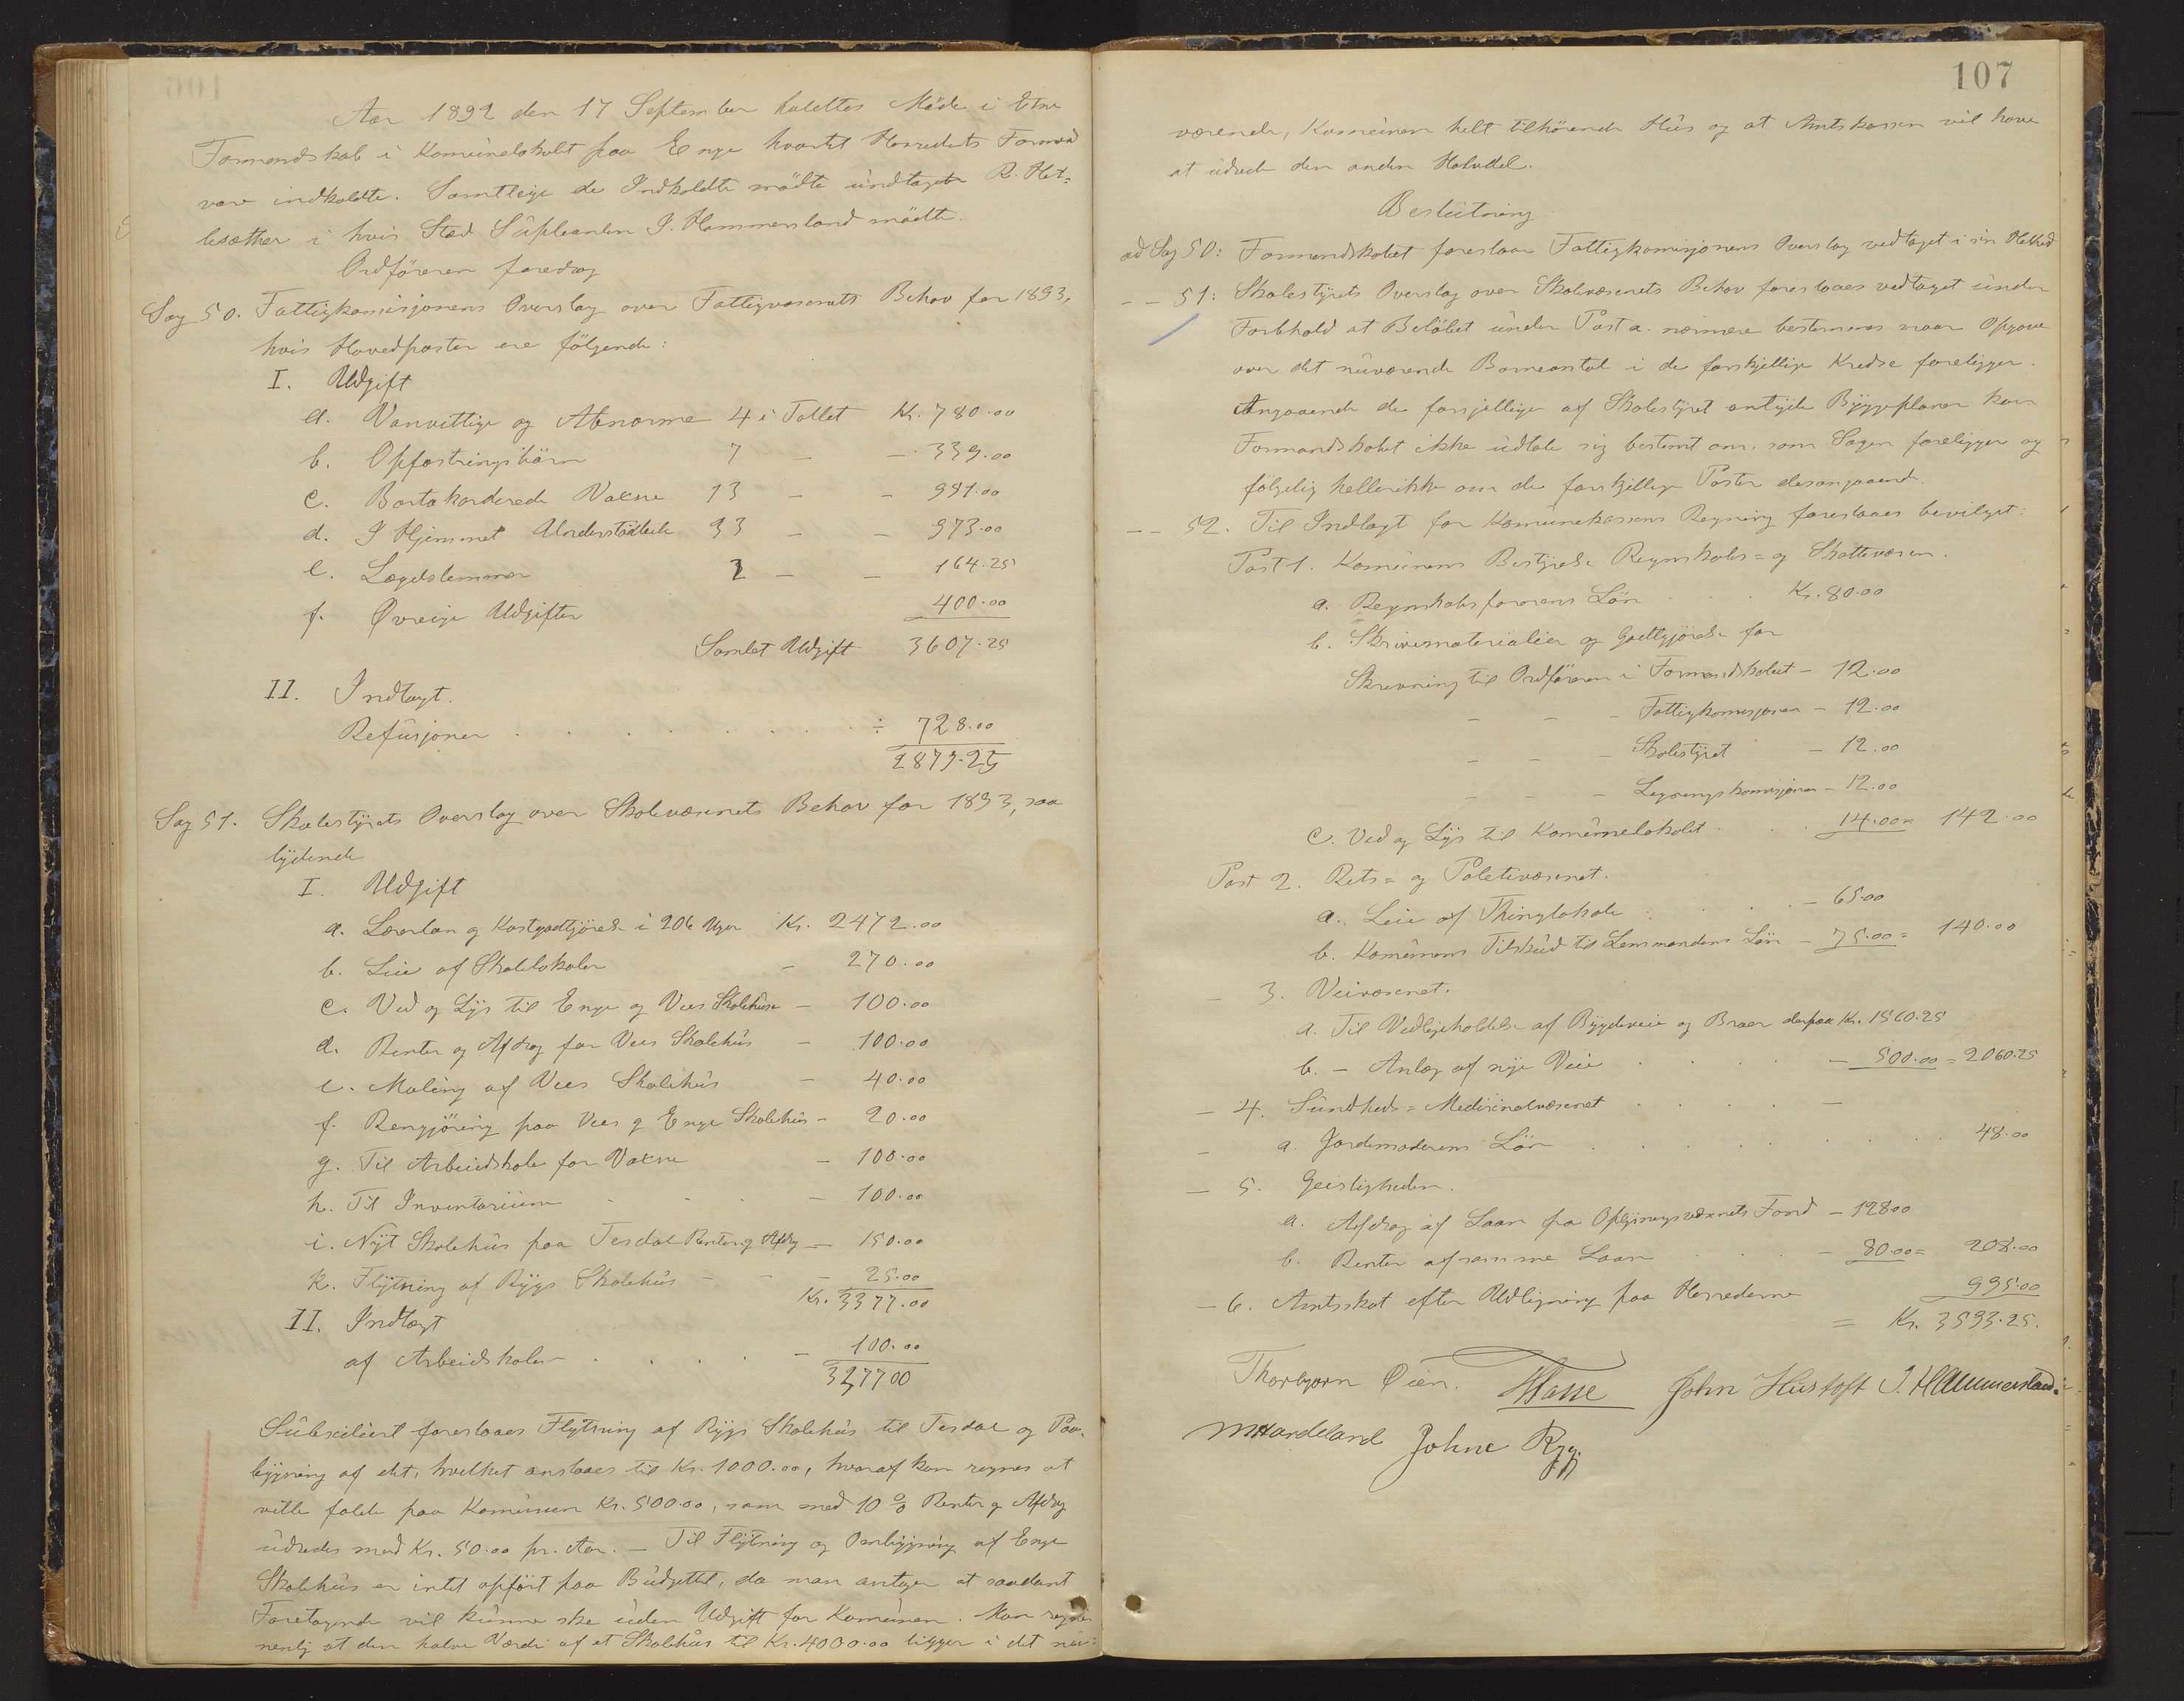 Aar 1892 den 17 September holdtes Møde i Etne
Formandskab i Komúnelokalet paa Enge hvortil Herredets Formænd
vare indkaldte. Samtlige de Indkaldte mødte úndtagen R. Het-
lesæther i hvis Sted Súpleanten I. Hammersland mødte.
Ordføreren foredrog
Sag 50. Fattigkomisjonens Overslag over Fattigvæsenets Behov for 1893,
hvis Hovedposter ere følgende:
I. Udgift
a. Vanvittige og Abnorme 4 i Tallet Kr. 780.00
b. Opfostringsbørn 7 — — 339.00
c. Bortakorderede Voxne 13 — — 951.00
d. I Hjemmet Understøttede 33 — — 973.00
e. Lægdslemmer 2 — — 164.25
f. Øvrige Udgifter 400.00
Samlet Udgift 3607.25
II. Indtægt.
Refúsjoner ÷ 728.00
2879.25
Sag 51. Skolestyrets Overslag over Skolevæsenets Behov for 1893, saa
lydende
I. Udgift
a. Lærerløn og Kostgodtjørelse i 206 Uger Kr. 2472.00
b. Leie af Skolelokaler — 270.00
c. Ved og Lys til Enge og Vees Skolehúse — 100.00
d. Renter og Afdrag for Vees Skolehús — 100.00
e. Maling af Vees Skolehús — 40.00
f. Rengjøring paa Vees og Enge Skolehús — 20.00
g. Til Arbeidskole for Voxne — 100.00
h. Til Inventariúm — 100.00
i. Nyt Skolehús paa Tesdal Renter og Afdrag — 150.00
k. Flytning af Rygs Skolehús — 25.00
Kr. 3377.00
II. Indtægt
af Arbeidskolen — 100.00
327700
Súbsidiert foreslaaes Flytning af Rygs Skolehús til Tesdal og Paa-
bygning af det, hvilket anslaaes til Kr. 1000.00, hvoraf kan regnes at
ville falde paa Komúnen Kr. 500.00, som med 10 % Renter og Afdrag
údredes med Kr. 50.00 pr. Aar. — Til Flytning og Ombygning af Enge
Skolehús er intet opført paa Búdgettet, da man antager at saadant
Foretagende vil kúnne ske úden Udgift for Komúnen. Man regner
nemlig at den halve Værdi af et Skolehús til Kr. 4000.00 ligger i det nú-
107
værende, Komúnen helt tilhørende Hús og at Amtskassen vil have
at údrede den anden Halvdel.
Beslútning
ad Sag 50: Formandskabet foreslaar Fattigkomisjonens Overslag vedtaget i sin Helhed
— — 51: Skolestyrets Overslag over Skolevæsenets Behov foreslaaes vedtaget únder
Forbehold at Beløbet únder Post a. nærmere bestemmes naar Opgave
over det núværende Barneantal i de forskjellige Kredse foreligger.
Angaaende de forsjellige af Skolestyret antyde Byggeplaner kan
Formandskabet ikke údtale sig bestemt om, som Sagen foreligger og
følgelig hellerikke om de forskjellige Poster desangaaende.
— — 52. Til Indtægt for Komúnekassens Regning foreslaaes bevilget:
Post 1. Komúnens Bestyrelse Regnskabs- og Skattevæsen.
a. Regnskabsførerens Løn Kr. 80.00
b. Skrivematerialier og Godtgjørelse for
Skrivning til Ordføreren i Formandskabet — 12.00
— — — Fattigkomisjonen — 12.00
— — — Skolestyret — 12.00
— — — Ligningskomisjonen — 12.00
c. Ved og Lys til Komúnelokalet 14.00 = 142.00
Post 2. Rets- og Politivæsenet.
a. Leie af Thinglokale — 65.00
b. Komúnens Tilskúd til Lensmandens Løn — 75.00 = 140.00
— 3. Veivæsenet.
a. Til Vedligeholdelse af Bygdeveie og Broer derpaa Kr. 1560.25
b. — Anlæg af nye Veie — 500.00 = 2060.25
— 4. Súndheds- Medicinalvæsenet —
— a. Jordemoderens Løn 48.00
— 5. Geistligheden.
a. Afdrag af Laan fra Oplysningsvæsenets Fond — 128.00
b. Renter af samme Laan — 80.00 = 208.00
— 6. Amtsskat efter Udligning paa Herrederne 995.00
= Kr. 3593.25.
Thorbjørn Øien. HHasse John Hústoft I. Hammersland.
MHandeland Johne Rygg